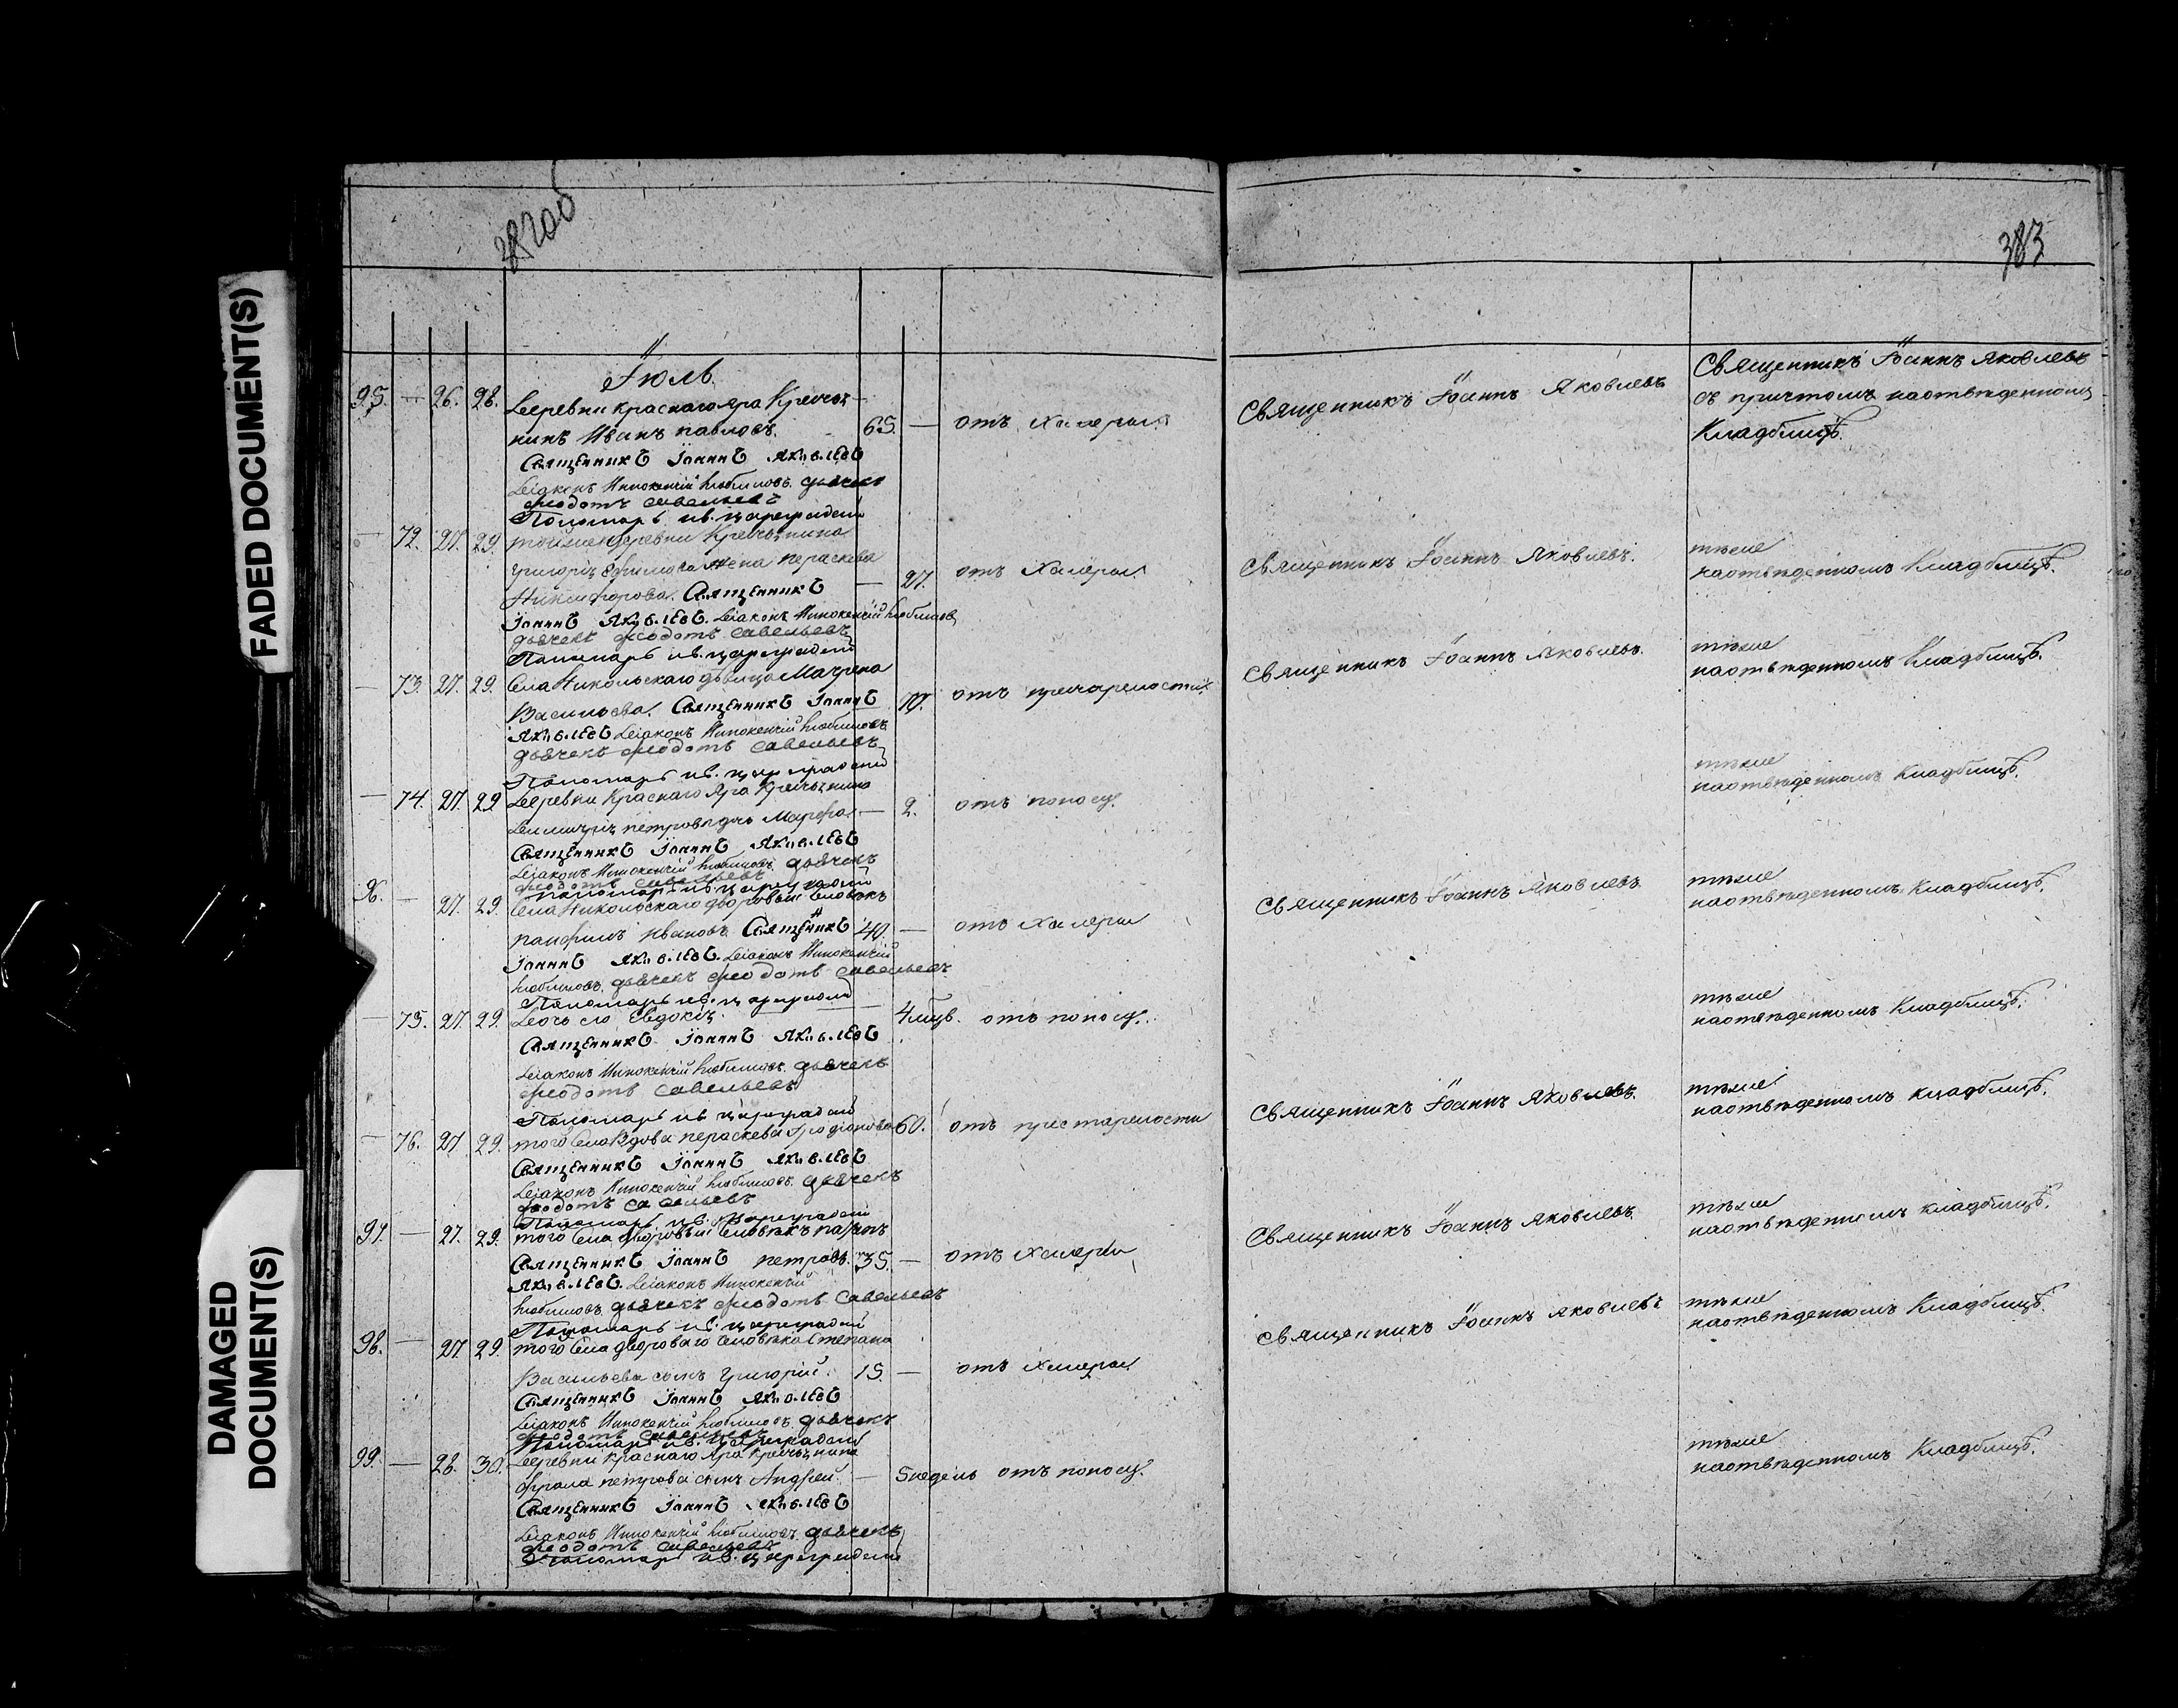 FADED DOCUMENT(S)
DAMAGED
DOCUMENT(S)
383
Іюль
95. — 26. 28. Деревни Краснаго Яра Крестья-
нинъ Иванъ Павловъ. 65. — отъ холеры.
Священникъ Іоаннъ Яковлевъ
Священникъ Іоаннъ Яковлевъ
съ причтомъ на отведенномъ
кладбищѣ.
Священникъ Іоаннъ Яковлевъ
Діаконъ Иннокентій Любимовъ. дьячекъ
Феодотъ Савельевъ
Пономарь Ив. Цареградскій
— 72. 27. 29. тойже деревни Крестьянина
Григорія Ефимова жена Параскева
Никифорова. Священникъ — 27. отъ холеры.
Священникъ Іоаннъ Яковлевъ.
тѣже
на отведенномъ кладбищѣ.
Іоаннъ Яковлевъ. Діаконъ Иннокентій Любимовъ
дьячекъ Феодотъ Савельевъ
Пономарь Ив. Цареградскій
— 73. 27. 29. Села Никольскаго дѣвица
Васильева. Священникъ Іоаннъ отъ престарелости
Священникъ Іоаннъ Яковлевъ.
тѣже
на отведенномъ кладбищѣ.
Яковлевъ Діаконъ Иннокентій Любимовъ
дьячекъ Феодотъ Савельевъ
Пономарь Ив. Цареградскій
— 74. 27. 29 Деревни Краснаго Яра Крестьянина
Димитрія Петрова дочь Марфа. — 2. отъ поносу.
тѣже
на отведенномъ кладбищѣ.
Священникъ Іоаннъ Яковлевъ
Діаконъ Иннокентій Любимовъ. дьячекъ
Феодотъ Савельевъ
Пономарь Ив. Цареградскій
96. — 27. 29. Села Никольскаго дворовый человѣкъ
Панфилъ Ивановъ. Священникъ 40. — отъ холеры
Священникъ Іоаннъ Яковлевъ
тѣже
на отведенномъ кладбищѣ.
Іоаннъ Яковлевъ. Діаконъ Иннокентій
Любимовъ. дьячекъ Феодотъ Савельевъ
Пономарь Ив. Цареградскій
— 75. 27. 29. Дочь его Евдокія. — 4 отъ поносу.
тѣже
на отведенномъ кладбищѣ.
Священникъ Іоаннъ Яковлевъ
Діаконъ Иннокентій Любимовъ. дьячекъ
Феодотъ Савельевъ
Пономарь Ив. Цареградскій
— 76. 27 29. того села вдова Параскева Иродіонова 60. отъ престарелости
Священникъ Іоаннъ Яковлевъ.
тѣже
на отведенномъ кладбищѣ.
Священникъ Іоаннъ Яковлевъ
Діаконъ Иннокентій Любимовъ. дьячекъ
Феодотъ Савельевъ
Пономарь Ив. Цареградскій
97. — 27. 29. того села дворовый человѣкъ
Священникъ Іоаннъ Петровъ. 35. — отъ холеры
Священникъ Іоаннъ Яковлевъ.
тѣже
на отведенномъ кладбищѣ.
Яковлевъ. Діаконъ Иннокентій
Любимовъ. дьячекъ Феодотъ Савельевъ
Пономарь Ив. Цареградскій
98. — 27 29. того села двороваго человѣка Степана
Васильева сынъ Григорій. 15. — отъ холеры
Священникъ Іоаннъ Яковлевъ
тѣже
на отведенномъ кладбищѣ.
Священникъ Іоаннъ Яковлевъ
Діаконъ Иннокентій Любимовъ. дьячекъ
Феодотъ Савельевъ
Пономарь Ив. Цареградскій
99. — 28. 30. Деревни Краснаго Яра Крестьянина
Фрола Петрова сынъ Андрей. — 5 недель отъ поносу.
тѣже
на отведенномъ кладбищѣ.
Священникъ Іоаннъ Яковлевъ
Діаконъ Иннокентій Любимовъ. дьячекъ
Феодотъ Савельевъ
Пономарь Ив. Цареградскій